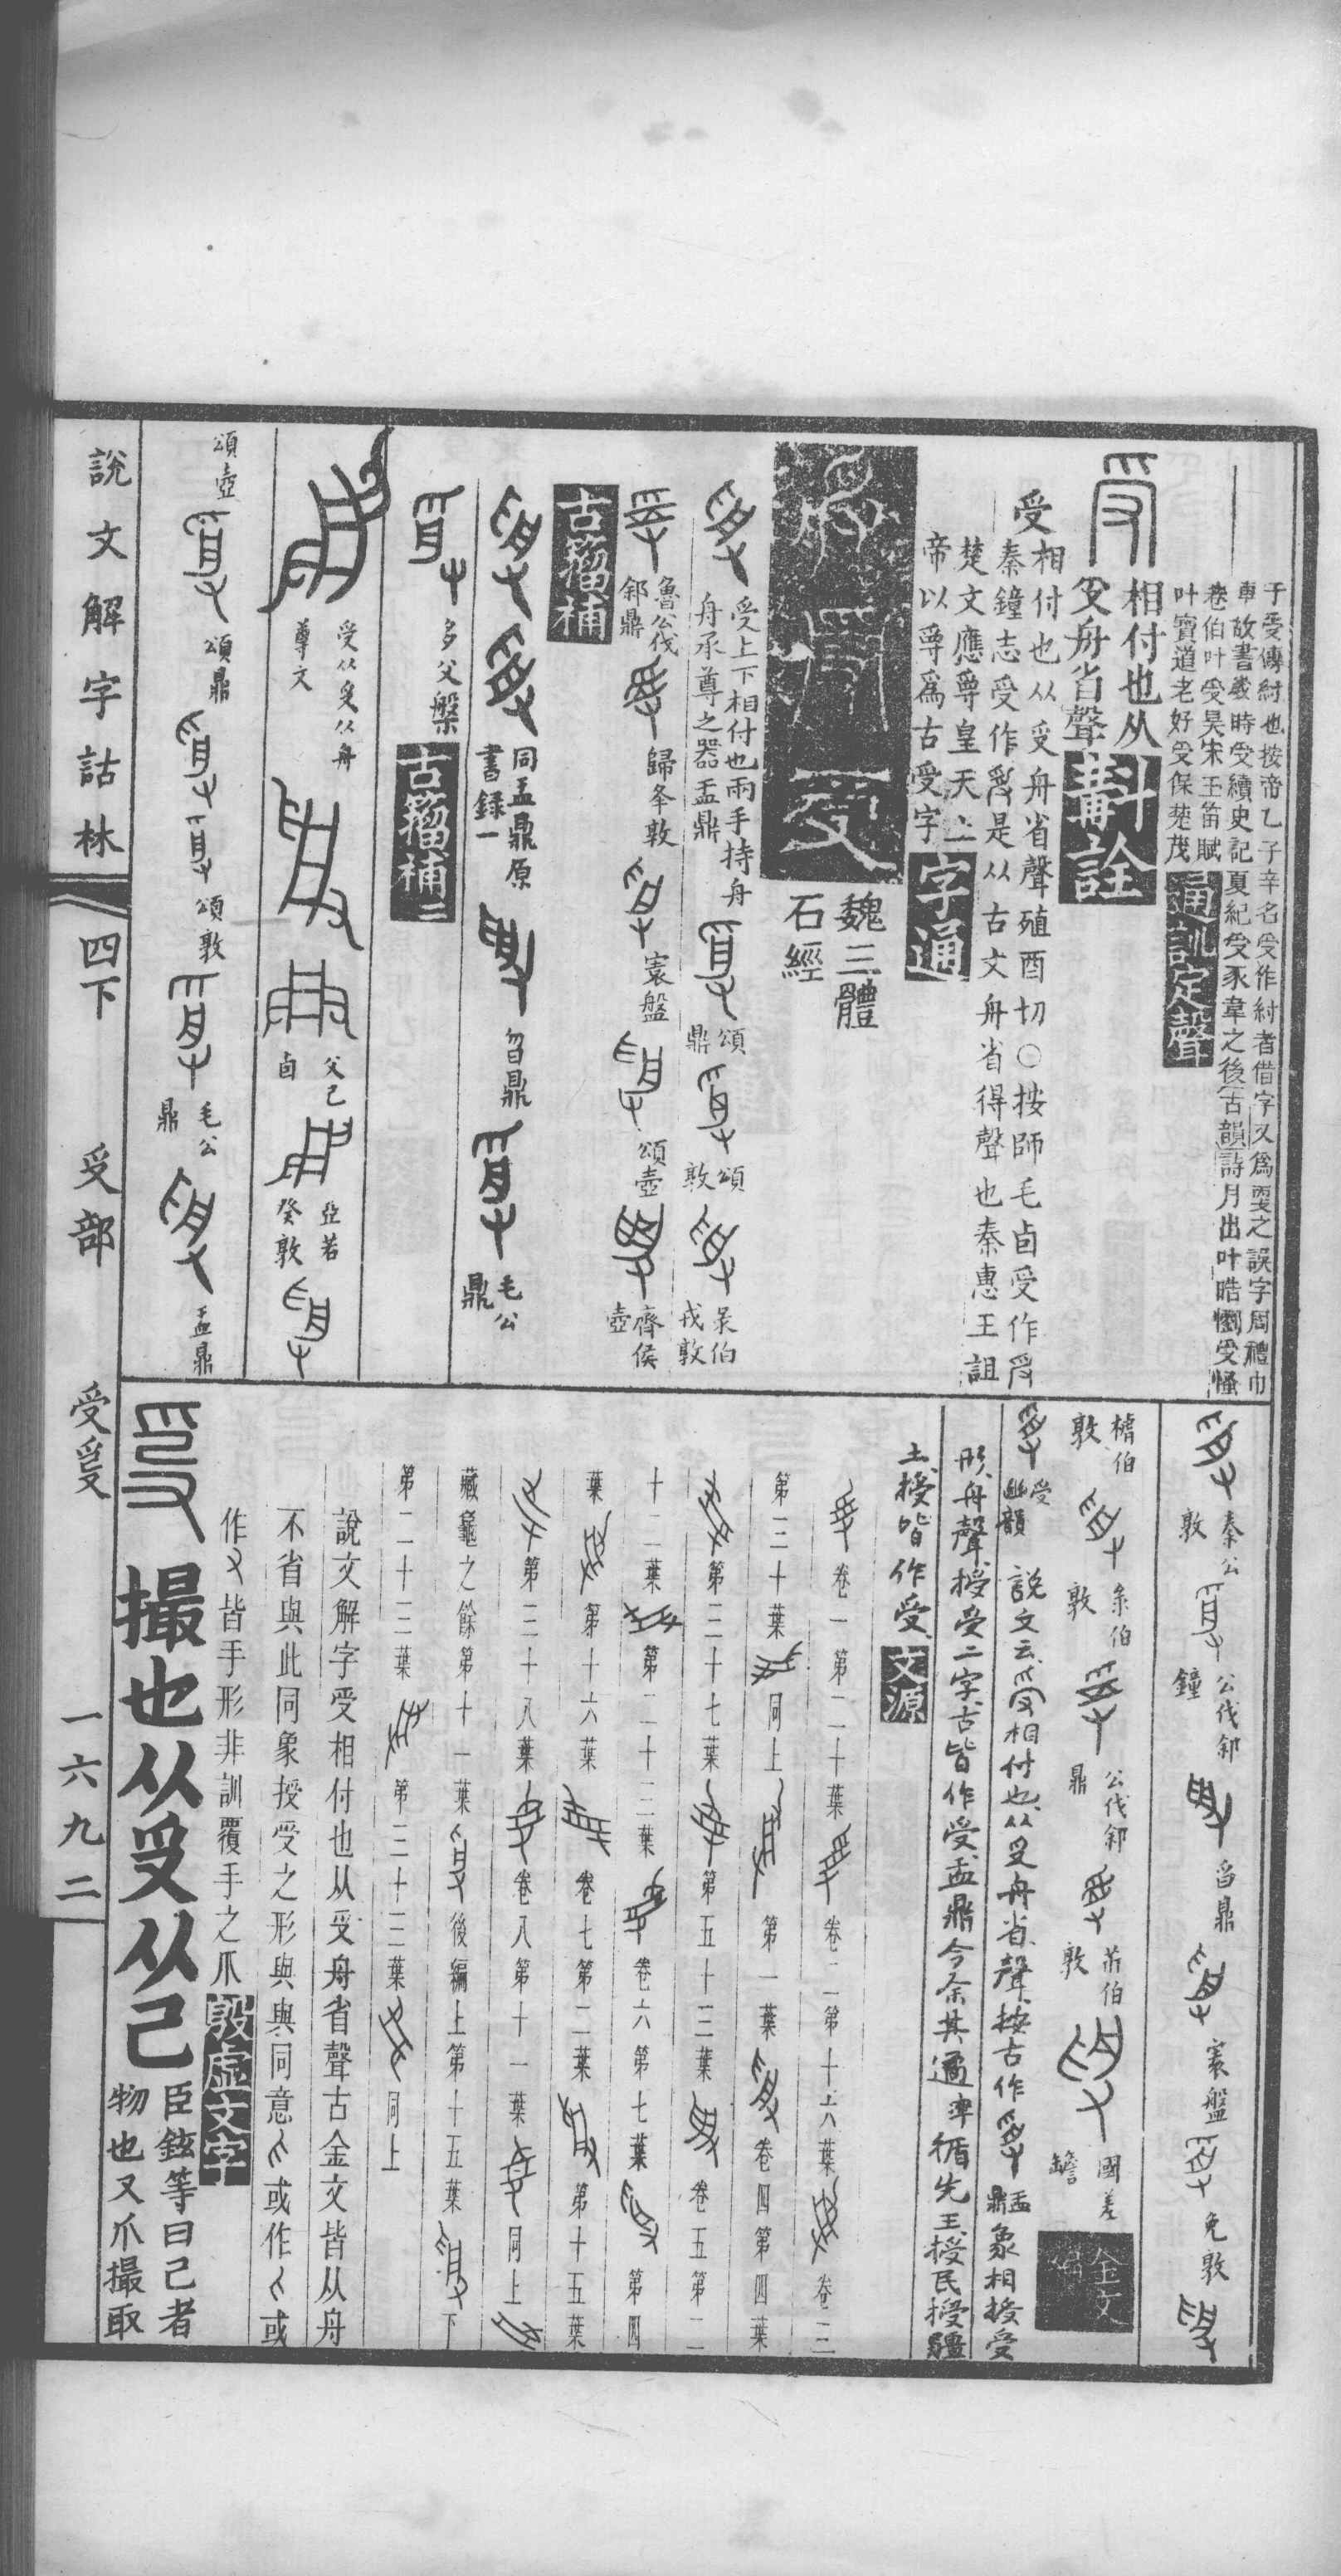 于受傳紂也按帝乙子辛名受作紂者借字又爲𠭥之誤字周禮巾
車故書𢧵時受續史記夏紀受豕韋之後古韻詩月出叶晧懰受慅
巷伯叶受昊宋玉笛賦
叶寶道老好受保楚茂
通訓定聲
相付也从
𠬪舟省聲
斠詮
受相付也从𠬪舟省聲殖酉切○按師毛卣受作
秦鐘志受作是从古文舟省得聲也秦惠王詛
楚文應尊皇天上
帝以尊爲古受字
字通
魏三體
石經
受上下相付也兩手持舟
舟承尊之器盂鼎
頌鼎
頌敦
彔伯戎敦
魯公伐邾鼎
歸夆敦
寰盤
頌壺
齊侯壺
古籀補
同盂鼎原
書録一
曶鼎
毛公鼎
多父盤
古籀補二
受从𠬪从舟
尊文
父己卣
亞若癸敦
頌壺
頌鼎
頌敦
毛公鼎
盂鼎
秦公敦
公伐邾鐘
曶鼎
寰盤
免敦
楮伯敦
彔伯敦
公伐邾鼎
𦬫伯敦
國差𦉜
金文編
受幽韻
說文云受相付也从𠬪舟省聲按古作
盂鼎
象相授受
形舟聲授受二字古皆作受盂鼎今余其遹率循先王授民授疆
土授皆作受
文源
卷一第二十葉
卷二第十六葉
卷三
第三十葉
同上
第一葉
卷四第四葉
第三十七葉
第五十三葉
卷五第二
十二葉
第二十三葉
卷六第七葉
第四
葉
第十六葉
卷七第二葉
第十五葉
第三十八葉
卷八第十一葉
同上
藏龜之餘第十一葉
後編上第十五葉
下
第二十三葉
第三十三葉
同上
說文解字受相付也从𠬪舟省聲古金文皆从舟
不省與此同象授受之形與與同意或作或
作又皆手形非訓覆手之爪
殷虛文字
撮也从𠬪从己
臣鉉等曰己者
物也又爪撮取
說文解字詁林
四下
𠬪部
受𠭊
一六九二